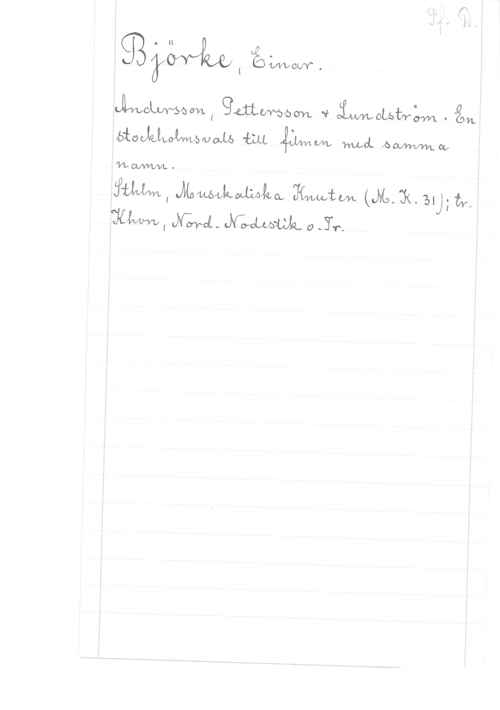 Pf. D.
Björke, Einar.
Andersson, Pettersson & Lundström. En
stockholmsvals till filmen med samma
namn.
Sthlm, Musikaliska Knuten (M. K. 31); tr.
Khvn, Nord. Nodestik o. Tr.